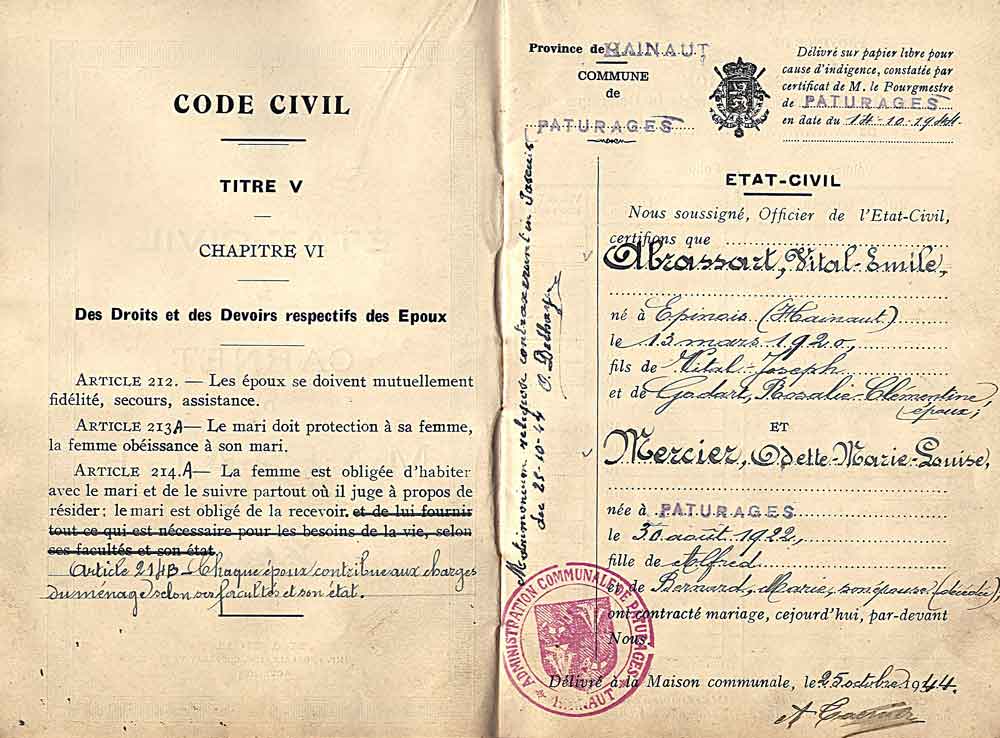 CODE CIVIL
TITRE V
CHAPITRE VI
Des Droits et des Devoirs respectifs des Epoux
ARTICLE 212. — Les époux se doivent mutuellement
fidélité, secours, assistance.
ARTICLE 213A — Le mari doit protection à sa femme,
la femme obéissance à son mari.
ARTICLE 214.A — La femme est obligée d'habiter
avec le mari et de le suivre partout où il juge à propos de
résider; le mari est obligé de la recevoir. et de lui fournir
tout ce qui est nécessaire pour les besoins de la vie, selon
ses facultés et son état.
Article 214B - Chaque époux contribue aux charges
du ménage selon ses facultés et son état.
Province de HAINAUT
COMMUNE
de
PATURAGES
Délivré sur papier libre pour
cause d'indigence, constatée par
certificat de M. le Pourgmestre
de PATURAGES
en date du 14-10-1944
Matrimonium religiose contraxerunt in
die 25-10-44
ETAT-CIVIL
Nous soussigné, Officier de l'Etat-Civil,
certifions que
Abrassart, Vital-Emile,
né à Epinois (Hainaut)
le 13 mars 1920,
fils de Vital-Joseph
et de Godart, Rosalie-Clémentine,
époux,
ET
Mercier, Odette-Marie-Louise,
née à PATURAGES
le 30 août 1922,
fille de Alfred
et de Bernard, Marie, son épouse (décédée),
ont contracté mariage, cejourd'hui, par-devant
Nous.
Délivré à la Maison communale, le 25 octobre 1944.
ADMINISTRATION COMMUNALE DE PATURAGES
HAINAUT